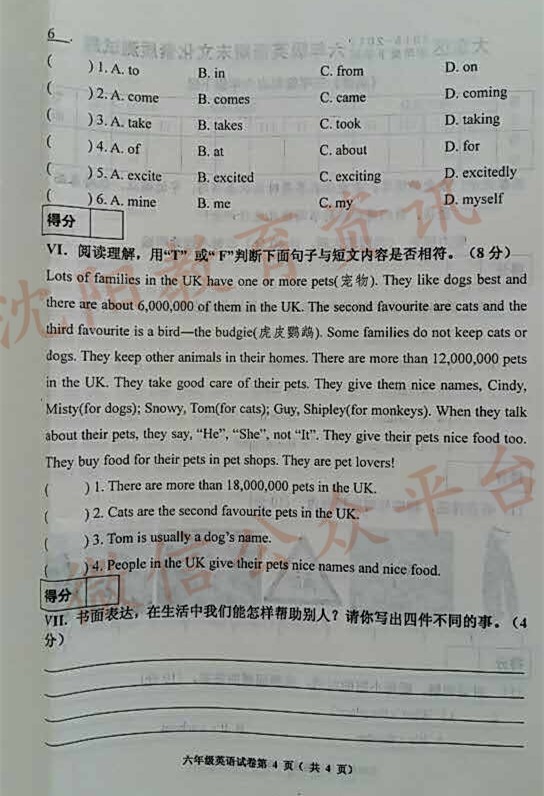 6 .
( ) 1. A. to B. in C. from D. on
( ) 2. A. come B. comes C. came D. coming
( ) 3. A. take B. takes C. took D. taking
( ) 4. A. of B. at C. about D. for
( ) 5. A. excite B. excited C. exciting D. excitedly
( ) 6. A. mine B. me C. my D. myself
得分
VI. 阅读理解，用“T” 或“ F”判断下面句子与短文内容是否相符。（8 分）
Lots of families in the UK have one or more pets(宠物). They like dogs best and
there are about 6,000,000 of them in the UK. The second favourite are cats and the
third favourite is a bird—the budgie(虎皮鹦鹉). Some families do not keep cats or
dogs. They keep other animals in their homes. There are more than 12,000,000 pets
in the UK. They take good care of their pets. They give them nice names, Cindy,
Misty(for dogs); Snowy, Tom(for cats); Guy, Shipley(for monkeys). When they talk
about their pets, they say, “He”, “She”, not “It”. They give their pets nice food too.
They buy food for their pets in pet shops. They are pet lovers!
( ) 1. There are more than 18,000,000 pets in the UK.
( ) 2. Cats are the second favourite pets in the UK.
( ) 3. Tom is usually a dog’s name.
( ) 4. People in the UK give their pets nice names and nice food.
得分
VII. 书面表达，在生活中我们能怎样帮助别人？请你写出四件不同的事。（4
分）
六年级英语试卷第 4 页（ 共 4 页）
沈阳教育资讯
微信公众平台